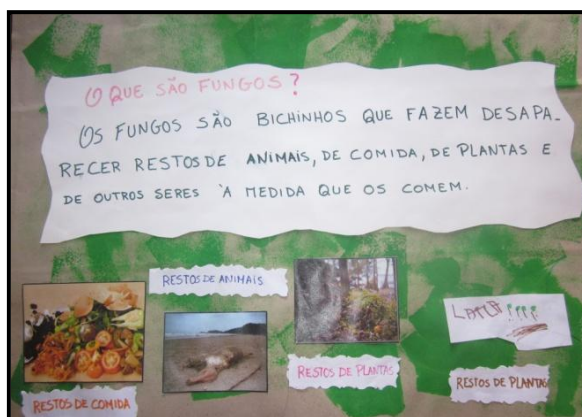 O QUE SÃO FUNGOS?
OS FUNGOS SÃO BICHINHOS QUE FAZEM DESAPA-
RECER RESTOS DE ANIMAIS, DE COMIDA, DE PLANTAS E
DE OUTROS SERES À MEDIDA QUE OS COMEM.
RESTOS DE ANIMAIS
RESTOS DE COMIDA
RESTOS DE PLANTAS
RESTOS DE PLANTAS